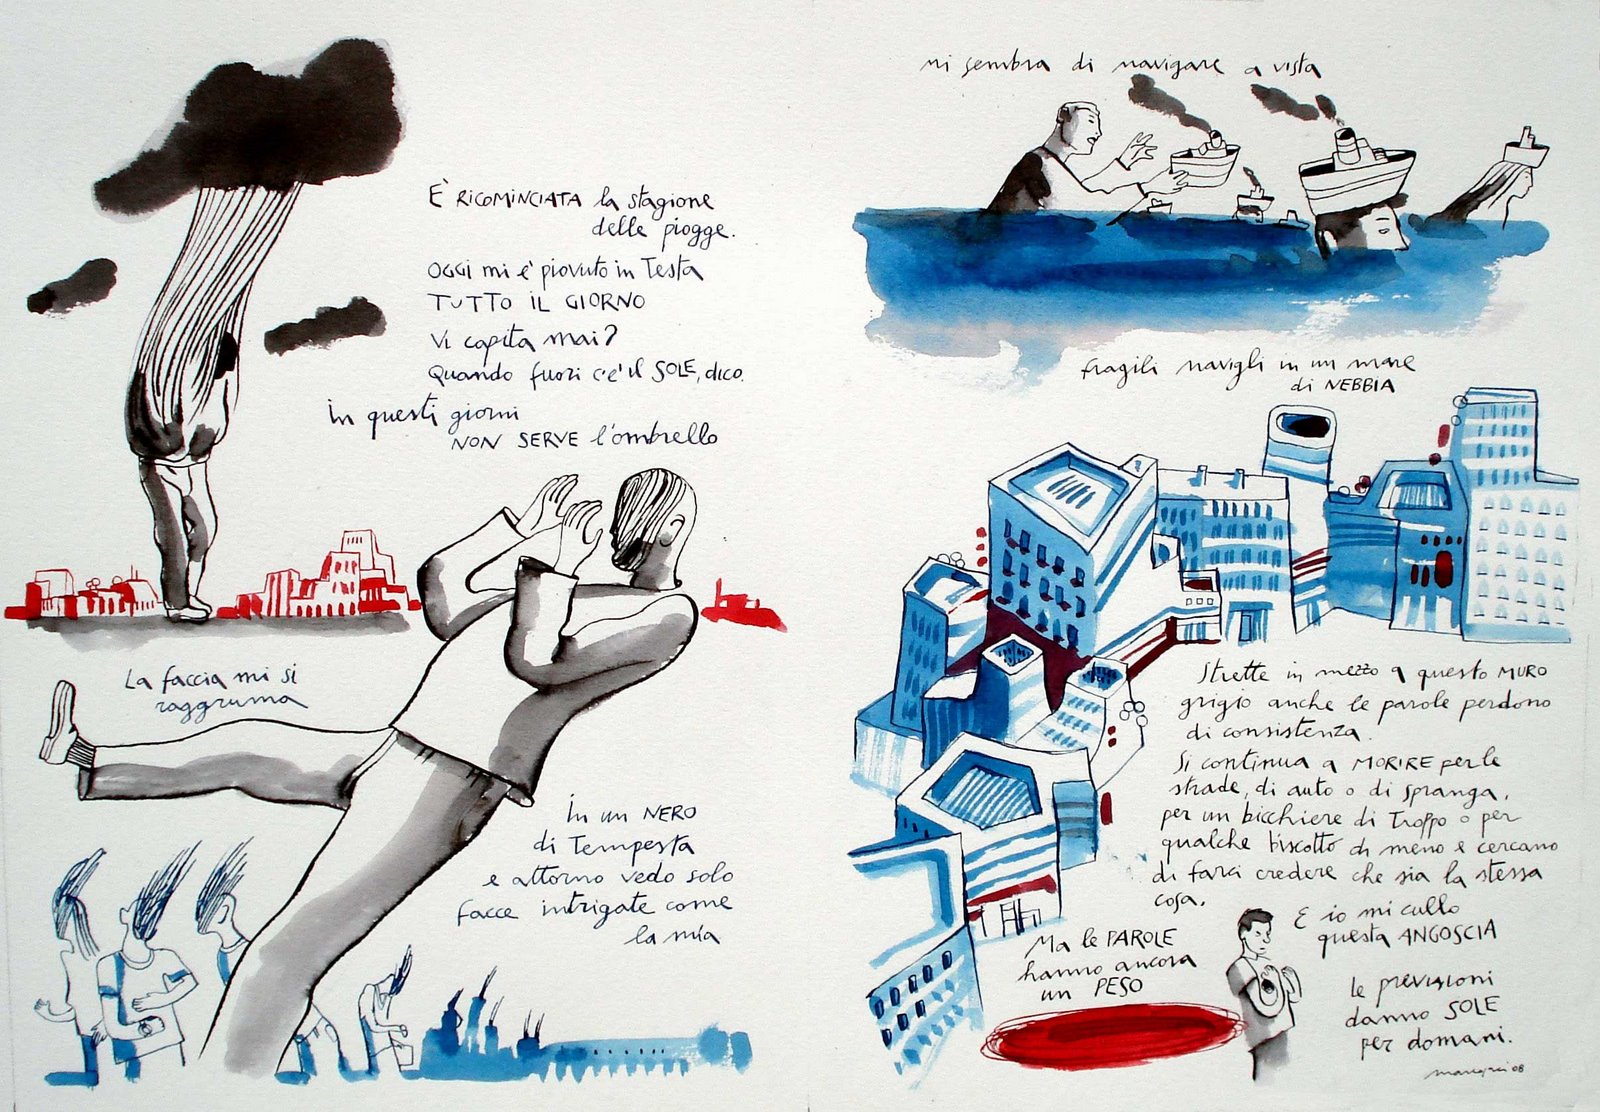 È RICOMINCIATA la stagione
delle piogge.
OGGI mi è piovuto in Testa
TUTTO IL GIORNO
Vi capita mai?
Quando fuori c'è il SOLE, dico.
In questi giorni
NON SERVE l'ombrello
La faccia mi si
raggruma
In un NERO
di Tempesta
e attorno vedo solo
facce intrigate come
la mia
mi sembra di navigare a vista
fragili navigli in un mare
di NEBBIA
Strette in mezzo a questo MURO
grigio anche le parole perdono
di consistenza.
Si continua a MORIRE per le
strade, di auto o di spranga,
per un bicchiere di Troppo o per
qualche biscotto di meno e cercano
di farci credere che sia la stessa
cosa.
Ma le PAROLE
hanno ancora
un PESO
E io mi cullo
questa ANGOSCIA
le previsioni
danno SOLE
per domani.
08